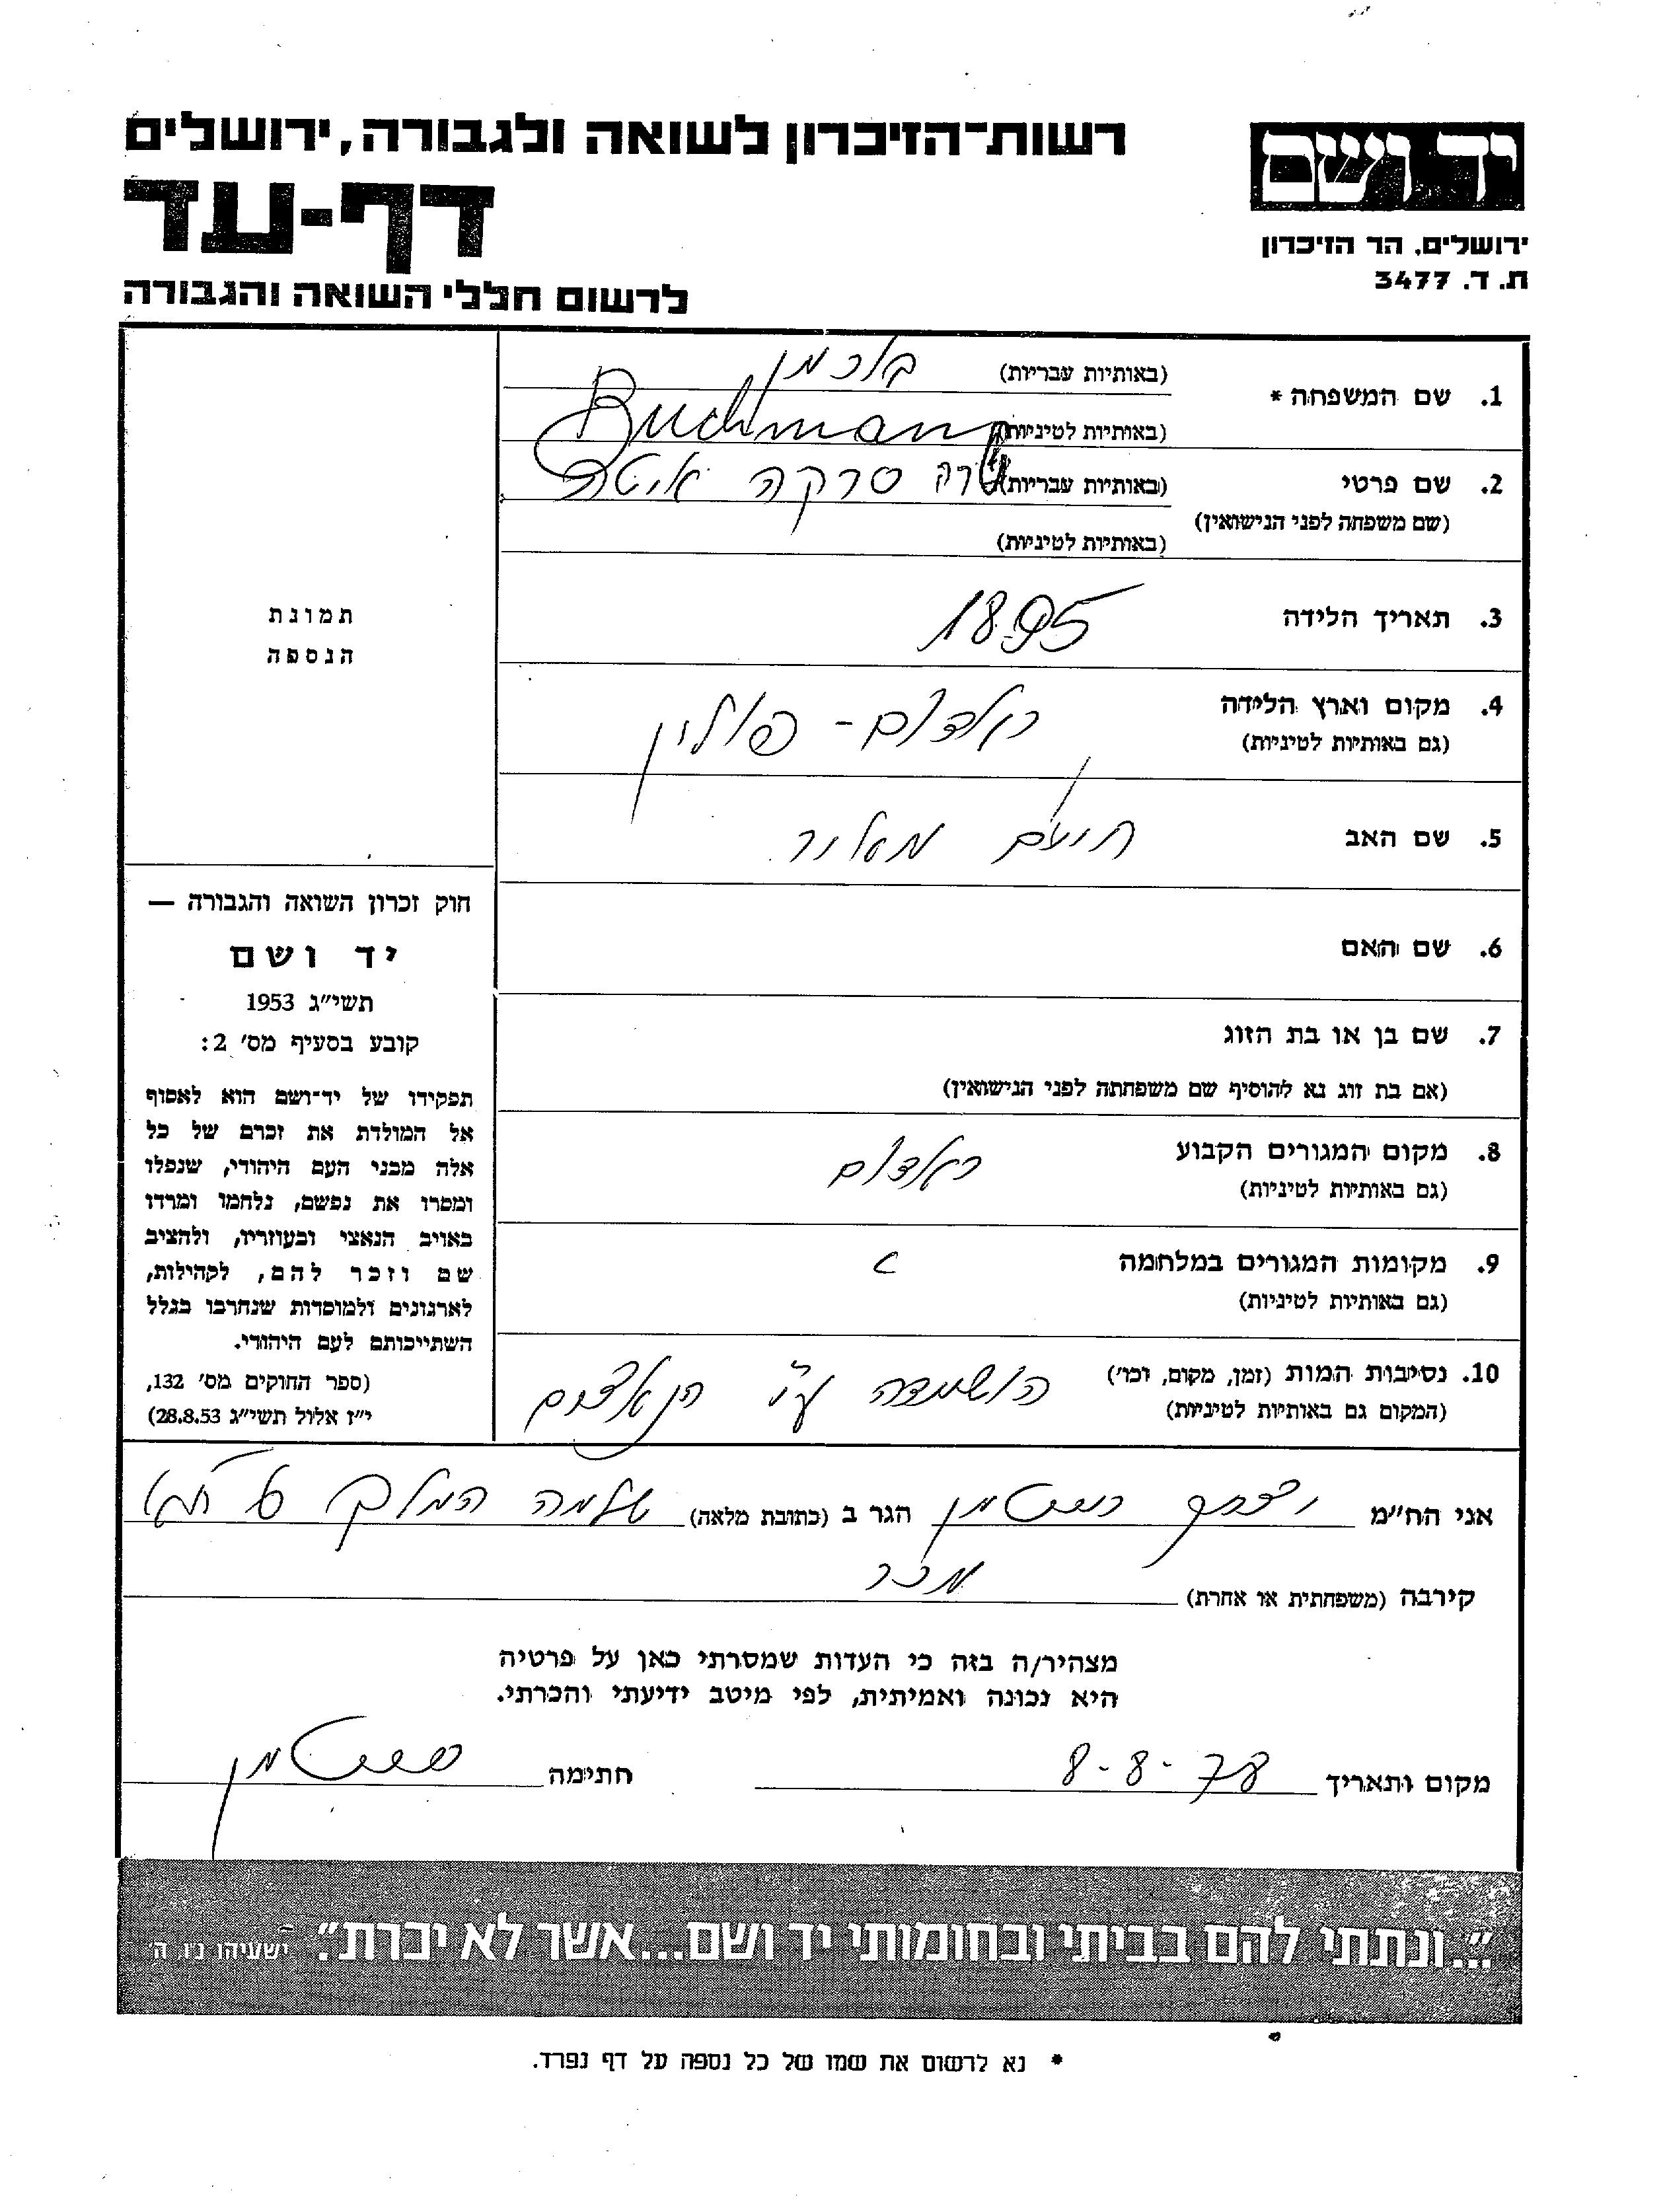 יד ושם
ירושלים, הר הזיכרון
ת. ד. 3477
רשות־הזיכרון לשואה ולגבורה, ירושלים
דף-עד
לרשום חללי השואה והגבורה
1. שם המשפחה * (באותיות עבריות) בוכמן
(באותיות לטיניות) Buchman
2. שם פרטי (באותיות עבריות) שרה סרקה איטה
(שם משפחה לפני הנישואין)
(באותיות לטיניות)
3. תאריך הלידה 1895
4. מקום וארץ הלידה ראדום - פולין
(גם באותיות לטיניות)
5. שם האב חיים מאיר
6. שם האם
7. שם בן או בת הזוג
(אם בת זוג נא להוסיף שם משפחתה לפני הנישואין)
8. מקום המגורים הקבוע ראדום
(גם באותיות לטיניות)
9. מקומות המגורים במלחמה
(גם באותיות לטיניות)
10. נסיבות המות (זמן, מקום, וכו') הושמדה ע"י הנאצים
(המקום גם באותיות לטיניות)
תמונת
הנספה
חוק זכרון השואה והגבורה —
יד ושם
תשי"ג 1953
קובע בסעיף מס' 2:
תפקידו של יד־ושם הוא לאסוף
אל המולדת את זכרם של כל
אלה מבני העם היהודי, שנפלו
ומסרו את נפשם, נלחמו ומרדו
באויב הנאצי ובעוזריו, ולהציב
שם וזכר להם, לקהילות,
לארגונים ולמוסדות שנחרבו בגלל
השתייכותם לעם היהודי.
(ספר החוקים מס' 132,
י"ז אלול תשי"ג 28.8.53)
אני הח"מ הגר ב (כתובת מלאה) שלמה המלך
קירבה (משפחתית או אחרת) מכר
מצהיר/ה בזה כי העדות שמסרתי כאן על פרטיה
היא נכונה ואמיתית, לפי מיטב ידיעתי והכרתי.
מקום ותאריך 8-8-78 חתימה
"...ונתתי להם בביתי ובחומותי יד ושם...אשר לא יכרת". ישעיהו נ"ו, ה'
* נא לרשום את שמו של כל נספה על דף נפרד.